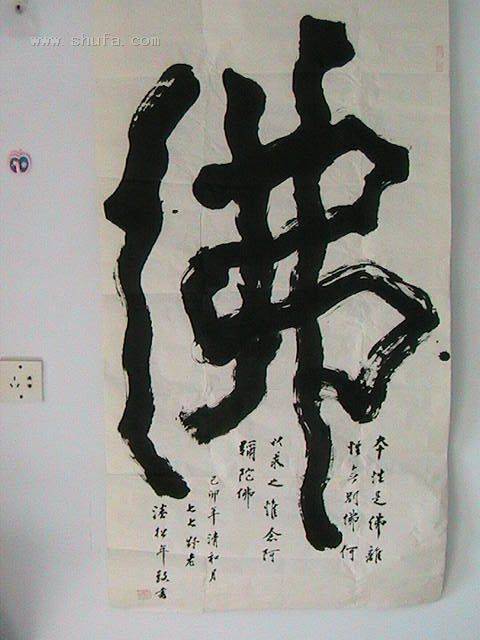 www.shufa.com
佛
本性是佛離
性无别佛何
以求之惟念阿
彌陀佛
己卯年清和月
七七老
松年敬書